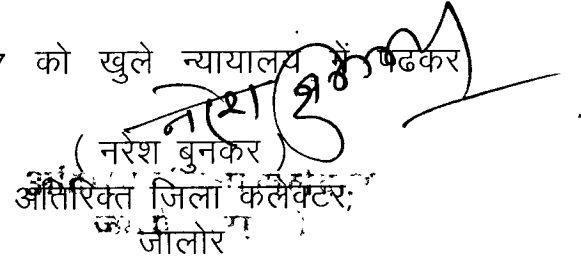 को खुले न्यायालय में पढकर
( नरेश बुनकर )
अतिरिक्त जिला कलेक्टर;
जालोर